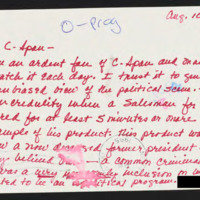 O-Prog
Aug. 10
C-Span —
an ardent fan of C-Span and
watch it each day. I trust it to
unbiased view of the political scene.
incredulity when a Salesman for
red for at least 5 minutes or more
sample of his product. This product was
a now deceased former president
behind a common criminal
was a very inclusion on
to be "an political program.